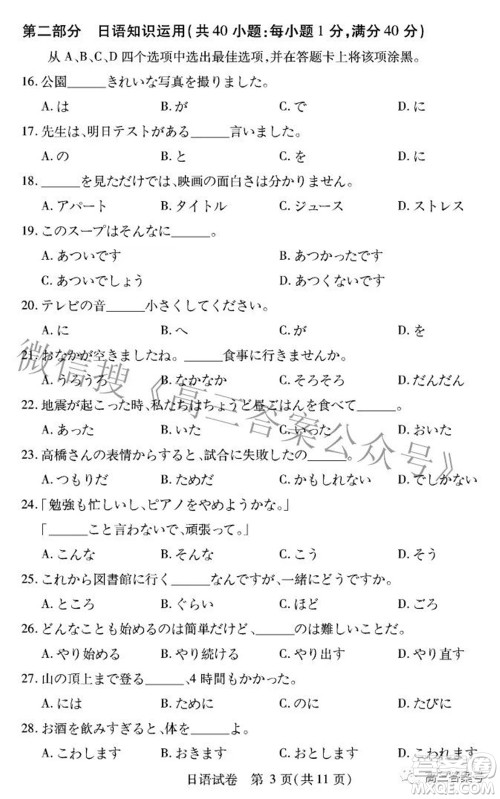 第二部分　日语知识运用(共40小题:每小题1分,满分40分)
从A、B、C、D四个选项中选出最佳选项,并在答题卡上将该项涂黑。
16. 公園______きれいな写真を撮りました。
A. は　B. が　C. で　D. に
17. 先生は、明日テストがある______言いました。
A. の　B. と　C. に　D. を
18. ______を見ただけでは、映画の面白さは分かりません。
A. アパート　B. タイトル　C. ジュース　D. ストレス
19. このスープはそんなに______。
A. あついです　B. あつかったです
C. あつくて　D. あつくないです
20. テレビの音______小さくしてください。
A. に　B. へ　C. を　D. が
21. おなかが空きましたね。______食事に行きませんか。
A. うろうろ　B. なかなか　C. そろそろ　D. だんだん
22. 地震が起こった時、私たちはちょうど昼ごはんを食べて______。
A. あった　B. なった　C. いった　D. おいた
23. 高橋さんの表情からすると、試合に失敗したの______。
A. つもりだ　B. だけだ　C. かもしれない　D. しかない
24.「勉強も忙しいし、ピアノをやめようかな。」
「______こと言わないで、頑張って。」
A. こんな　B. そんな　C. あんな　D. どんな
25. これから図書館に行く______なんですが、一緒にどうですか。
A. ところ　B. ぐらい　C. ほど　D. ごろ
26. どんなことも始めるのは簡単だけど、______のは難しい。
A. やり始める　B. やり続ける　C. やり出す　D. やり直す
27. 山の頂上まで登る______、4時間もかかった。
A. には　B. ために　C. のに　D. たびに
28. お酒を飲みすぎると、体を______よ。
A. こわします　B. こわれます　C. こわす　D. こわれる
日语试卷　第 3 页(共 11 页)
微信搜《高三答案公众号》
高三答案号